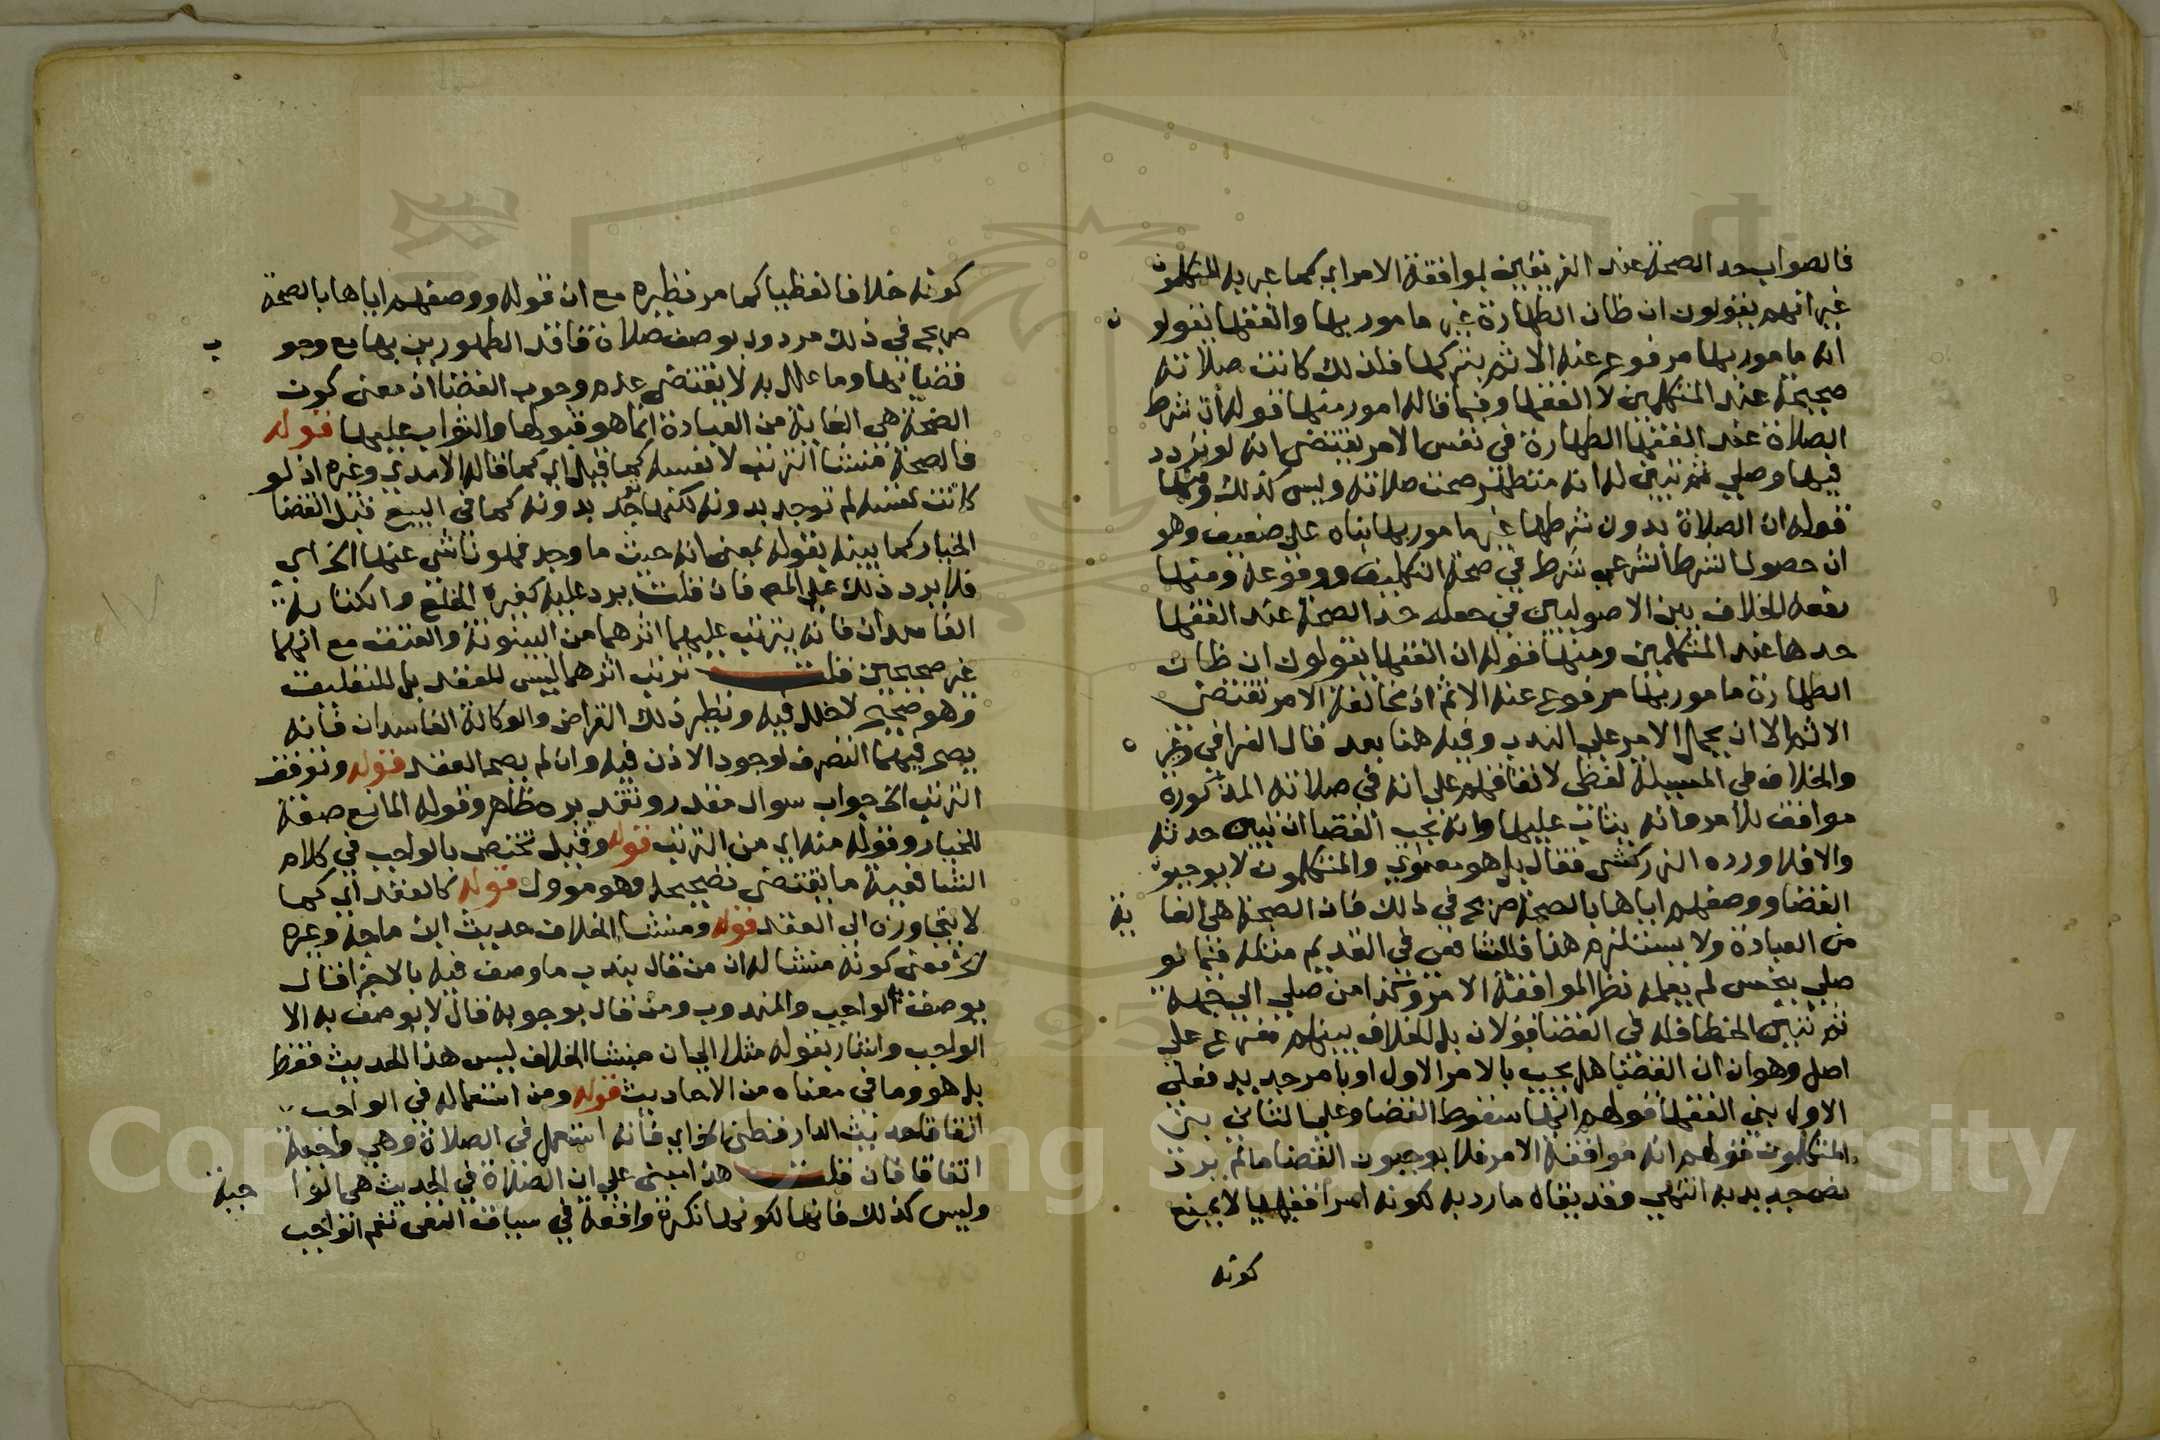 فالصواب حد الصحة عند الفريقين بموافقة الامر اي كما عبر به المتكلمون
غير انهم يقولون ان ظان الطهارة غير مامور بها والفقها يقولو ن
انه مامور بها مرفوع عنه الاثم بتركها فلذلك كانت صلاته
صحيحة عند المتكلمين لا الفقها وفيما قاله امور منها قوله ان شرط
الصلاة عند الفقها الطهارة في نفس الامر يقتضي انه لو تردد
فيها وصلي ثم تبين له انه متطهر صحت صلاته وليس كذلك ومنها
قوله ان الصلاة بدون شرطها غير مامور بها بناه علي ضعيف وهو
ان حصول الشرط الشرعي شرط في صحة التكليف ووقوعه ومنها
نقله الخلاف بين الاصوليين في جعله حد الصحة عند الفقها
حدها عند المتكلمين ومنها قوله ان الفقها يقولون ان ظان
الطهارة مامور بها مرفوع عنه الاثم اذ مخالفة الامر تقتضي
الاثم الا ان يحمل الامر علي الندب وفيه هنا بعد قال القرافي وغير ه
والخلاف في المسيلة لفظي لاتفاقهم علي انه في صلاته المذكورة
موافق للامر وانه يثاب عليها وانه يجب القضا ان تبين حدثه
والا فلا ورده الزركشي فقال بل هو معنوي والمتكلمون لا يوجبون
القضا ووصفهم اياها بالصحة صريح في ذلك فان الصحة هي الغا ية
من العبادة ولا يستلزم هذا فللشافعي في القديم مثله فيما لو
صلي بنجس لم يعلمه نظرا لموافقة الامر وكذا من صلي الي جهة
ثم تبين الخطا فله في القضا قولان بل الخلاف بينهم مفرع علي
اصل وهو ان القضا هل يجب بالامر الاول او بامر جديد فعلي
الاول بني الفقها قولهم انها سقوط القضا وعلي الثاني بني
المتكلمون قولهم انه موافقة الامر فلا يوجبون القضا ما لم يرد
نص جديد به انتهي وقد يقال ما رد به لكونه امرا فقهيا لا يمنع
كونه
كونه خلافا لفظيا كما مر نظيره مع ان قوله ووصفهم اياها بالصحة
صريح في ذلك مردود بوصف صلاة فاقد الطهورين بها مع وجو ب
قضيانها وما علل به لا يقتضي عدم وجوب القضا اذ معني كون
الصحة هي الغاية من العبادة انما هو قبولها والثواب عليها قوله
فالصحة منشا الترتب لا نفسه كما قيل اي كما قاله الامدي وغيره اذ لو
كانت نفسه لم توجد بدونه لكنها توجد بدونه كما في البيع قبل انقضا
الخيار كما بينه بقوله بمعني انه حيث ما وجد فهو ناشي عنها الخ اي
فلا يرد ذلك علي المص فان قلت يرد عليه كغيره الخلع والكتابة
الفاسدان فانه يترتب عليهما اثرهما من البينونة والعتق مع انهما
غير صحيحين قلت ترتب اثرهما ليس للعقد بل للتعليق
وهو صحيح لا خلل فيه ونظير ذلك القراض والوكالة الفاسدان فانه
يصح فيهما التصرف لوجود الاذن فيه وان لم يصح العقد قوله وتوقف
الترتب الخ جواب سوال مقدر وتقديره ظاهر وقوله المانع صفة
للخيار وقوله منه اي من الترتب قوله وقيل تختص بالواجب في كلام
الشافعية ما يقتضي تصحيحه وهو موول قوله كالعقد اي كما
لا يتجاوزه الي العقد قوله ومنشا الخلاف حديث ابن ماجة وغيره
الخ معني كونه منشا له ان من قال بندب ما وصف فيه بالاجزا قال
يوصف به الواجب والمندوب ومن قال بوجوبه قال لا يوصف به الا
الواجب واشار بقوله مثلا الي ان منشا الخلاف ليس هذا الحديث فقط
بل هو وما في معناه من الاحاديث قوله ومن استعماله في الواجب
اتفاقا حديث الدارقطني الخ اي فانه استعمل في الصلاة وهي واجبة
اتفاقا فان قلت هذا مبني علي ان الصلاة في الحديث هي الوا جبة
وليس كذلك فانها لكونها نكرة واقعة في سياق النفي تعم الواجب